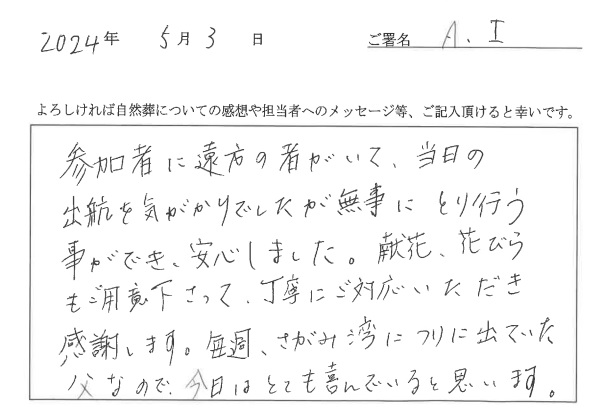 2024年 5月3日 ご署名 A.I
よろしければ自然葬についての感想や担当者へのメッセージ等、ご記入頂けると幸いです。
参加者に遠方の者がいて、当日の
出航を気がかりでしたが無事にとり行う
事ができ、安心しました。献花、花びら
もご用意下さって、丁寧にご対応いただき
感謝します。毎週、さがみ湾につりに出ていた
父なので、今日はとても喜んでいると思います。